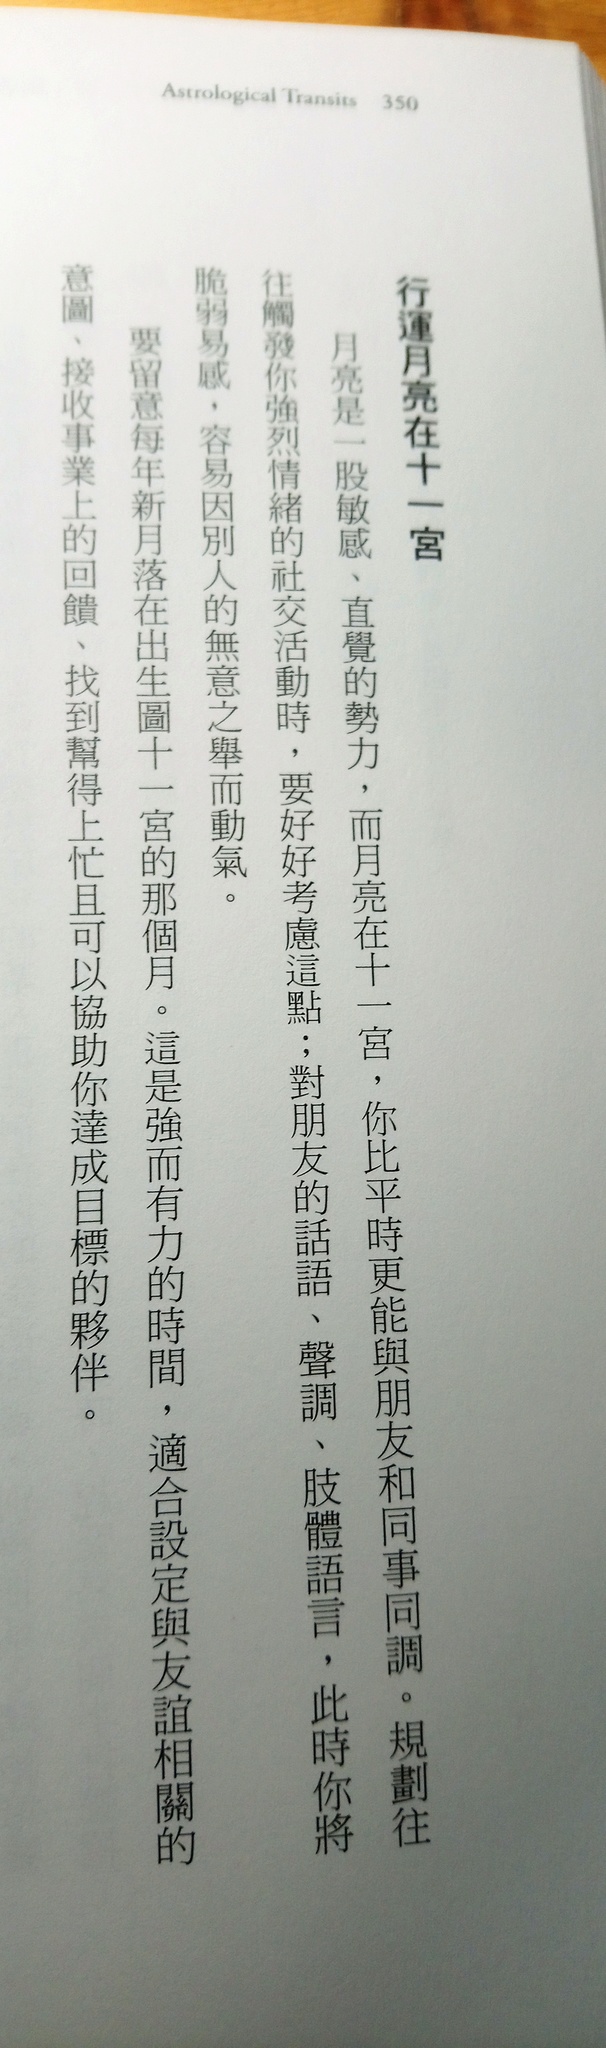 Astrological Transits 350
行運月亮在十一宮
月亮是一股敏感、直覺的勢力，而月亮在十一宮，你比平時更能與朋友和同事同調。規劃往
往觸發你強烈情緒的社交活動時，要好好考慮這點；對朋友的話語、聲調、肢體語言，此時你將
脆弱易感，容易因別人的無意之舉而動氣。
要留意每年新月落在出生圖十一宮的那個月。這是強而有力的時間，適合設定與友誼相關的
意圖、接收事業上的回饋、找到幫得上忙且可以協助你達成目標的夥伴。